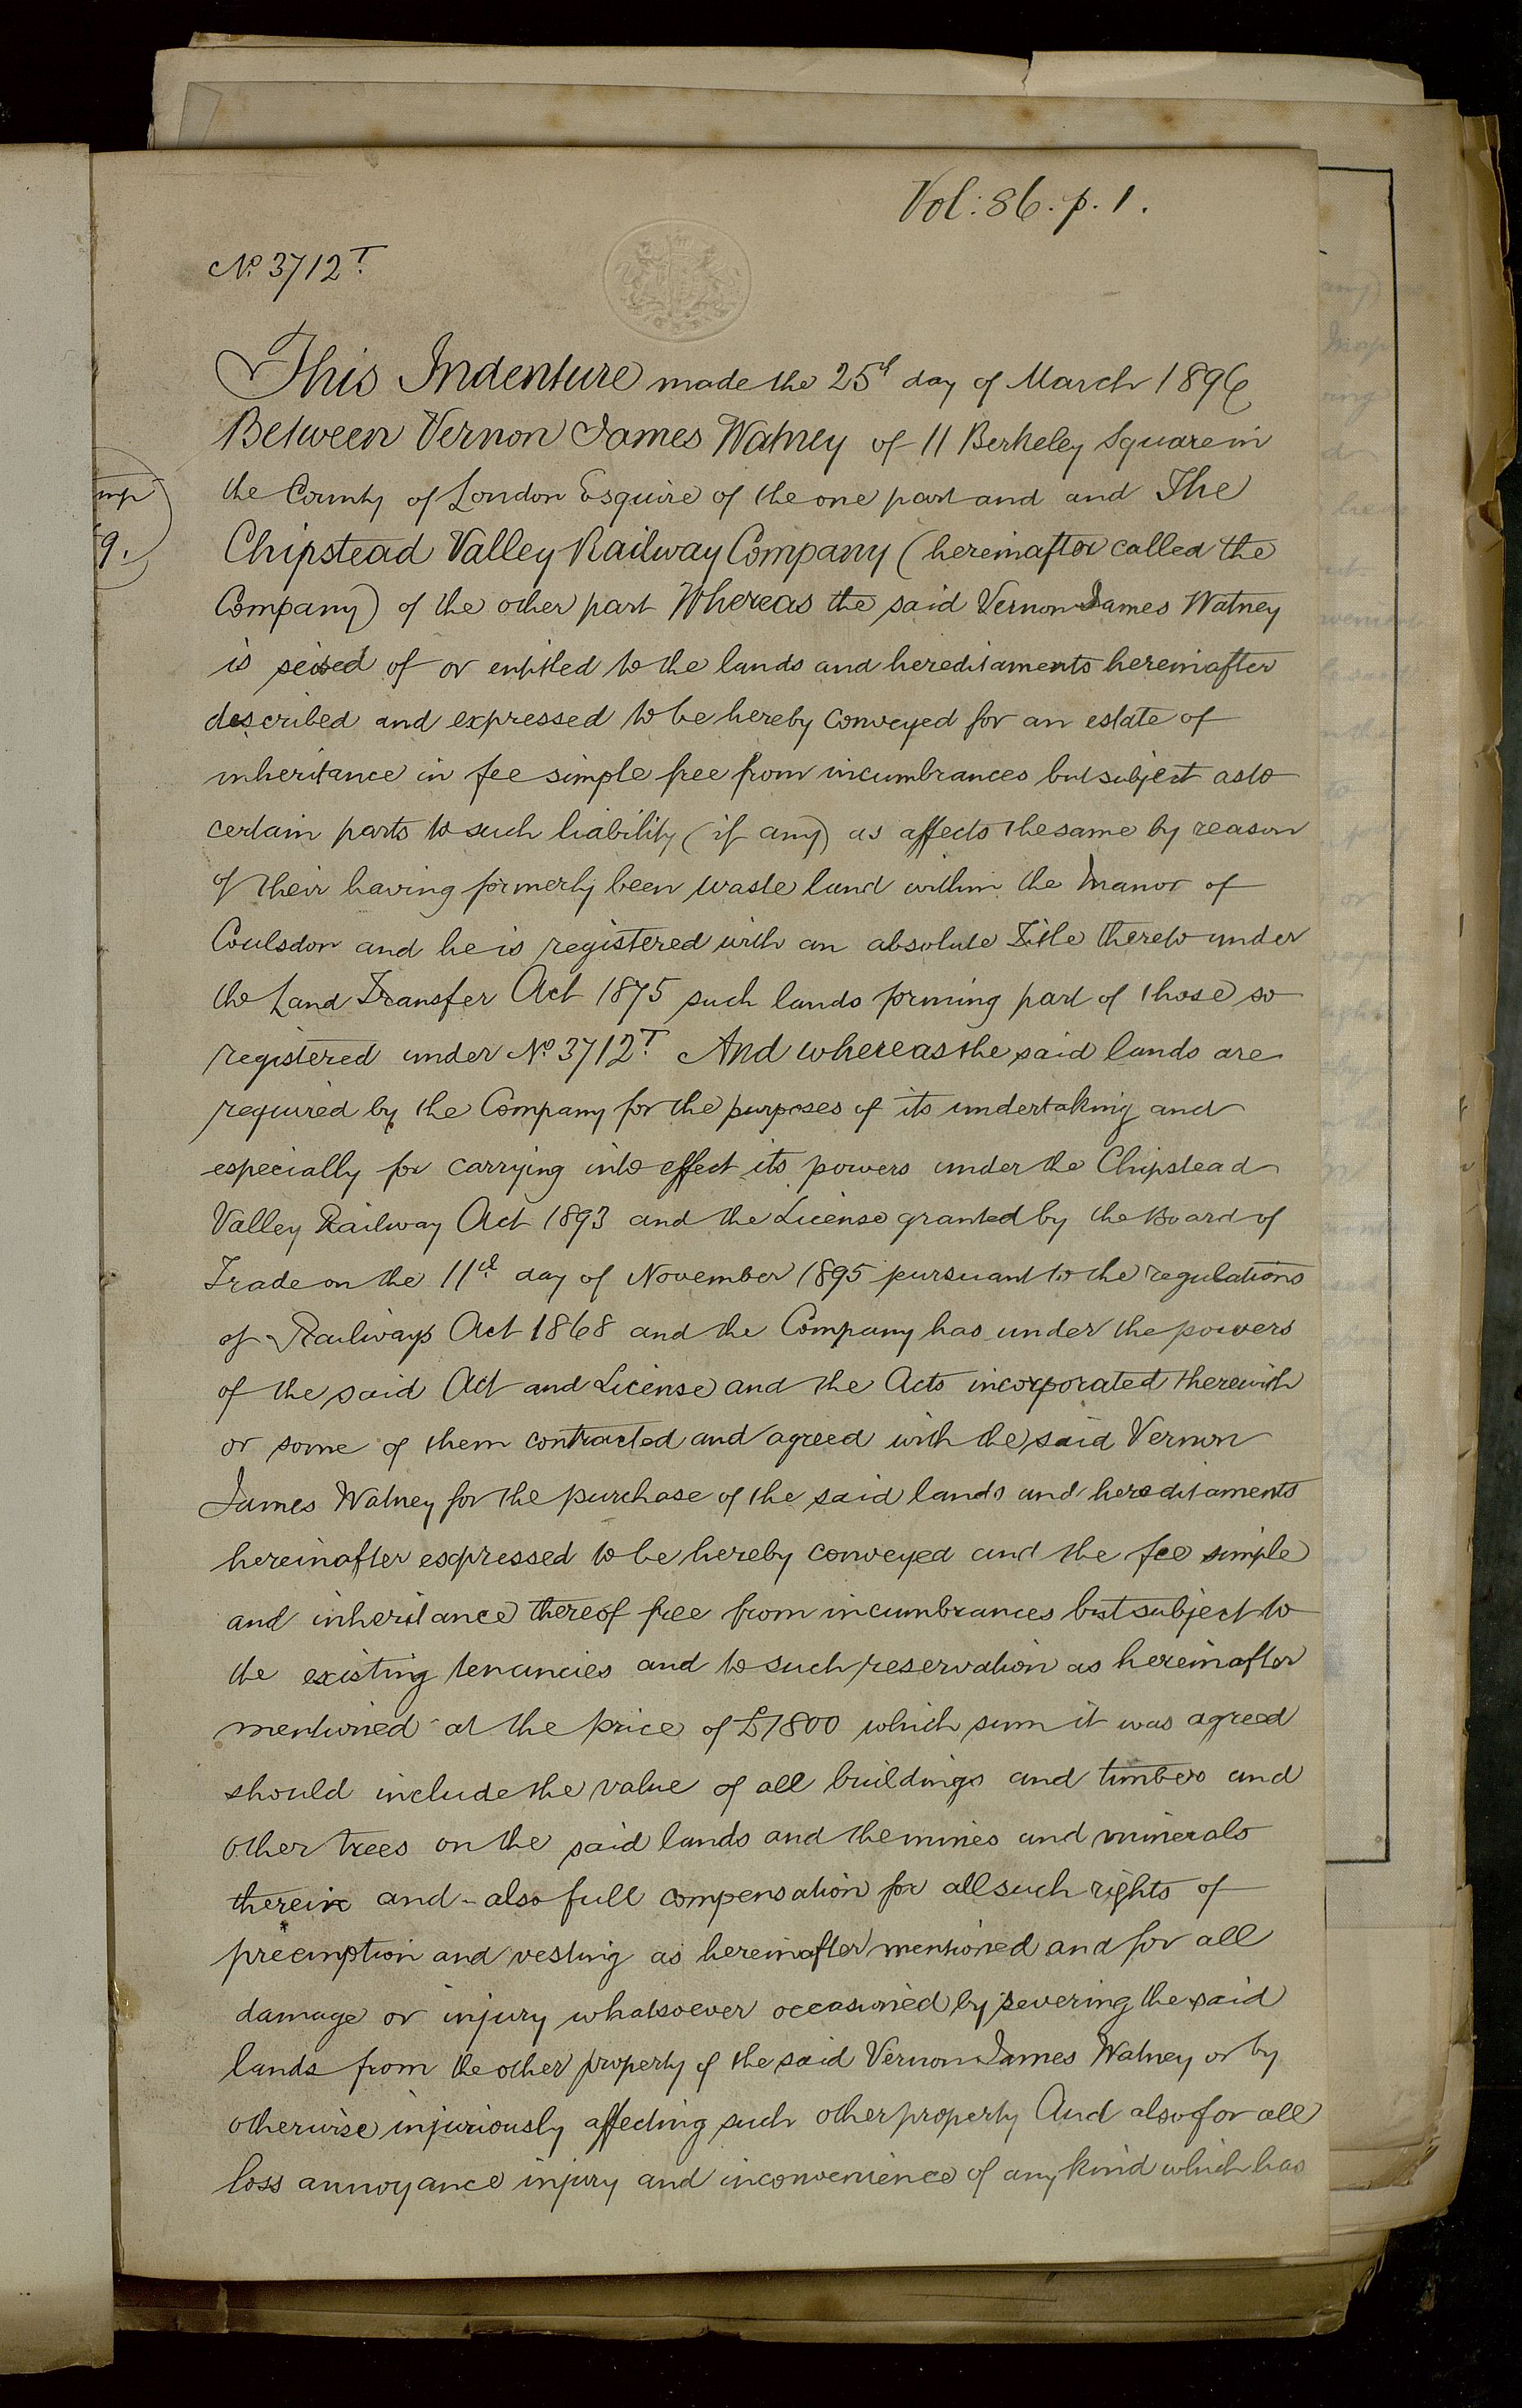 Vol: 86. p. 1.
No. 3712T.
This Indenture made the 25th day of March 1896
Between Vernon James Watney of 11 Berkeley Square in
the County of London Esquire of the one part and and The
Chipstead Valley Railway Company (hereinafter called the
Company) of the other part Whereas the said Vernon James Watney
is seised of or entitled to the lands and hereditaments hereinafter
described and expressed to be hereby conveyed for an estate of
inheritance in fee simple free from incumbrances but subject as to
certain parts to such liability (if any) as affects the same by reason
of their having formerly been waste land within the Manor of
Coulsdon and he is registered with an absolute Title thereto under
the Land Transfer Act 1875 such lands forming part of those so
registered under No. 3712T. And whereas the said lands are
required by the Company for the purposes of its undertaking and
especially for carrying into effect its powers under the Chipstead
Valley Railway Act 1893 and the License granted by the Board of
Trade on the 11th day of November 1895 pursuant to the regulations
of Railways Act 1868 and the Company has under the powers
of the said Act and License and the Acts incorporated therewith
or some of them contracted and agreed with the said Vernon
James Watney for the purchase of the said lands and hereditaments
hereinafter expressed to be hereby conveyed and the fee simple
and inheritance thereof free from incumbrances but subject to
the existing tenancies and to such reservation as hereinafter
mentioned at the price of £1800 which sum it was agreed
should include the value of all buildings and timber and
other trees on the said lands and the mines and minerals
therein and also full compensation for all such rights of
preemption and vesting as hereinafter mentioned and for all
damage or injury whatsoever occasioned by severing the said
lands from the other property of the said Vernon James Watney or by
otherwise injuriously affecting such other property And also for all
loss annoyance injury and inconvenience of any kind which has
9.